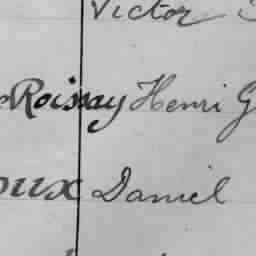 Victor
Roissay Henri G
oux Daniel